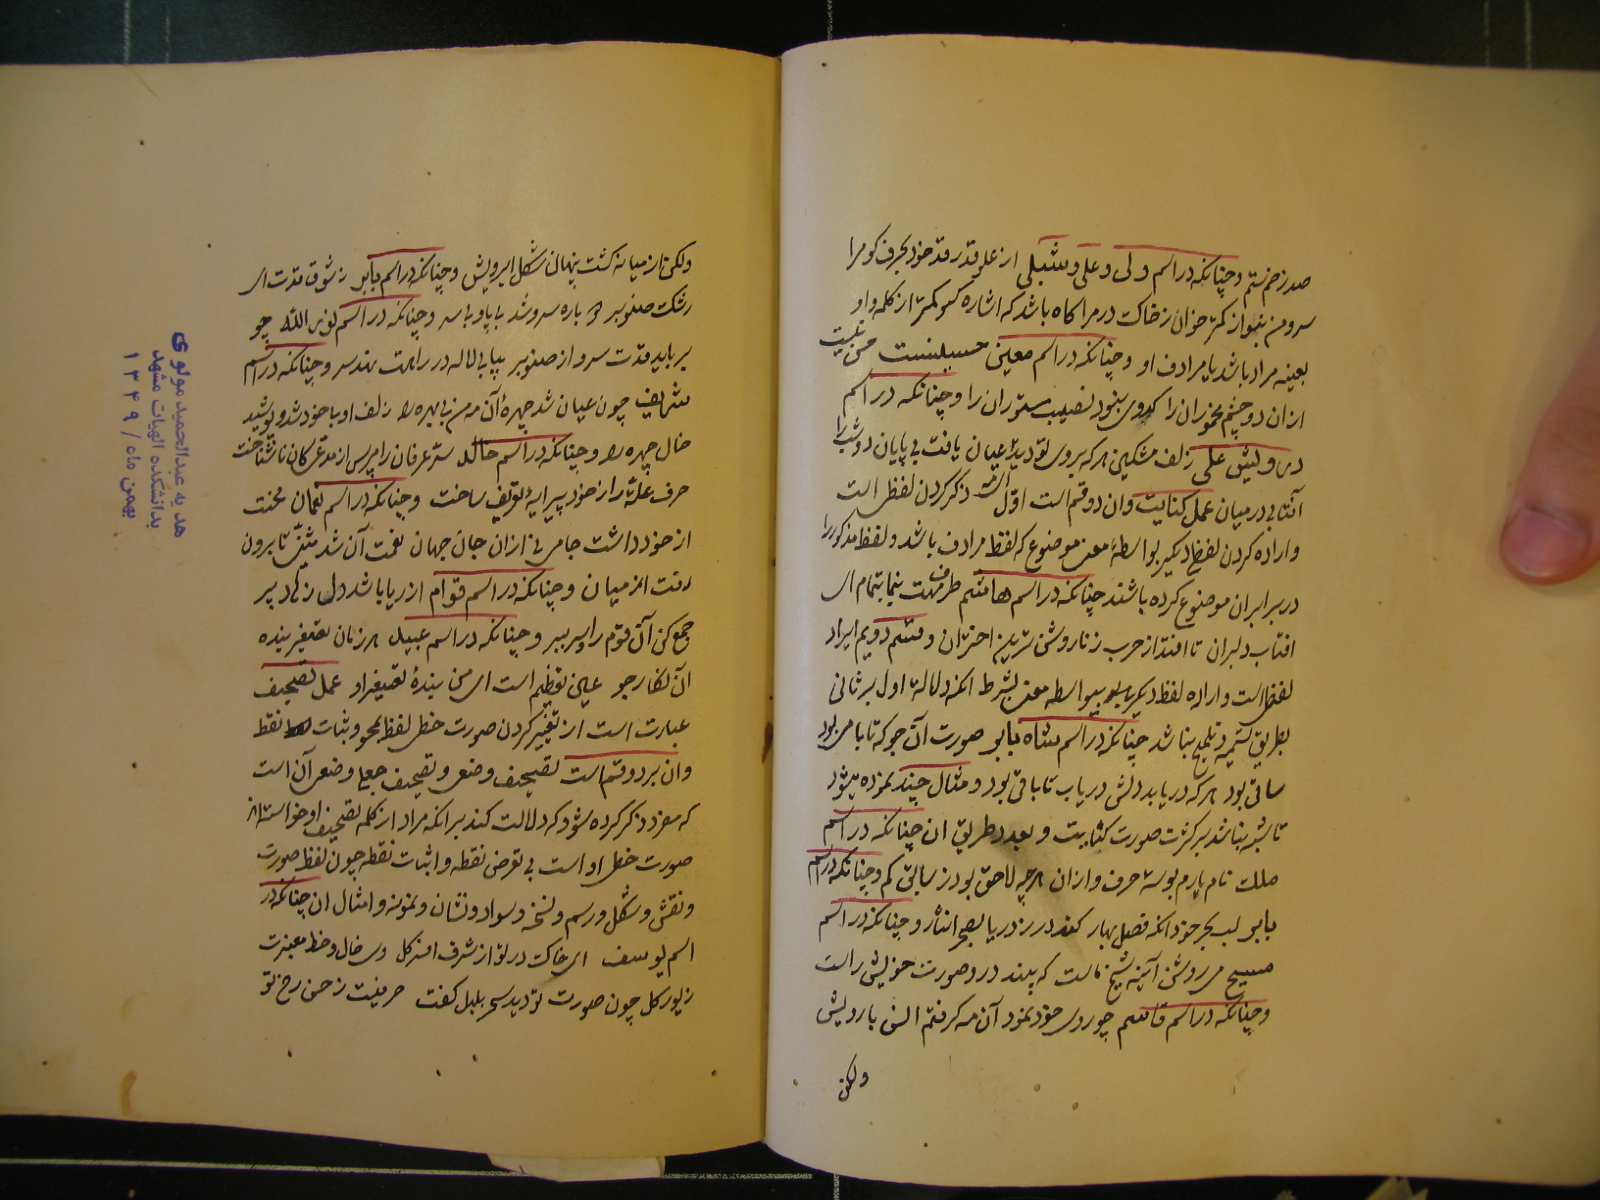 صدر زخم ستم و چنانکه در اسم ولی و علی و شبلی از علو قدر قد خود بحرف کو مرا
سرو من بنمو از کرم جوان ز خاکت در مرا کاه باشد که اشاره کمتر از کلمه واو
بعینه مراد باشد یا مرادف او و چنانکه در اسم معین حسبلینست حق تثبیت
از ان دو چشم مخموران را کروی بنود نصیب مستوران را و چنانکه در اسم
درویش علی زلف مشکین هر که بروی تو دید عیان یافت بی پایان دو شب را
آفتابی در میان عمل کنایت و ان دو قسم است اول آنکه ذکر کردن لفظ است
و اراده کردن لفظ دیگر بواسطهٔ معنی موضوع که لفظ مرادف باشد و لفظ مذکور را
در برابر ان موضوع کرده باشند چنانکه در اسم هاشم طرف مهت بنما بتمام ای
افتاب دلبران تا افتد از حرب ز نار روشن تر بین اختران و قسم دویم ایراد
لفظ است و اراده لفظ دیگر بی واسطه معنی بشرط انکه دلالة اول بر ثانی
بطریق تسمیه و تلمیح نباشد چنانکه در اسم شاه بابو صورت آن جو که تا با من بود
ساقی بود هر که دریابد دلش دریاب تا باقی بود و مثال چند نموده میشود
تا شبه نباشد بر کثرت صورت کنایت و بعد و طریق ان چنانکه در اسم
ملک نام یارم بوسه حرف و از ان هر چه لاحق بود ز سابق کم و چنانکه در اسم
بابو لب بحر خود انکه فصل بهار کند در ز دریا بصحرا نثار و چنانکه در اسم
مسیح می روشن آینه شیخ ماست که بیند در و صورت خویش راست
و چنانکه در اسم قاسم چو روی خود نمود آن مه کرفتم الف با رویش
ولکن
ولکن از میانه کشت پنهان شکل ابرویش و چنانکه در اسم بابو ز شوق قدت ای
رشک صنوبر دو باره سرو شد بی پا و بی سر و چنانکه در اسم نور الله چو
بر باید قدت سرو از صنوبر بپا بی لاله در راهت نهد سر و چنانکه در اسم
شریف چون عیان شد چهرهٔ آن مه من بی بهره را زلف او با خود شد و پوشید
خال چهره را و چنانکه در اسم خالد سر عرفان را مپرس از مدعی کان ناشناخت
حرف علت را از خود پیرایهٔ تعریف ساخت و چنانکه در اسم نعمان محنت
از خود داشت جامی نی از ان جان جهان نعمت آن شد مثنی تا برون
رفت از میان و چنانکه در اسم قوام از ریا باشد دل زکی د پر
جمع کن آن قوم را و سر ببر و چنانکه در اسم عبید هر زمان تصغیر بنده
آن نکار جو عین تعظیم است ای من بندهٔ تصغیر او عمل تصحیف
عبارت است از تغییر کردن صورت خطی لفظ بمحو و ثبات نقط
و ان بر دو قسم است تصحیف وضعی و تصحیف جعلی وضعی آن است
که مفرد ذکر کرده شود که دلالت کند بر انکه مراد از کلمه تصحیف او خواسته از
صورت خطی او است بی تعرض نقطه و اثبات نقطه چون لفظ صورت
و نقش و شکل و رسم و نسخه و سواد و نشان و نمونه و امثال ان چنانکه در
اسم یوسف ای خاکت در تو از شرف افسر کل وی خال و خط معبرت
زیور کل چون صورت تو دید سحر بلبل کفت حرفیست ز حسن رخ تو
هدیه عبدالحمید مولوی
بدانشکده الهیات مشهد
بهمن ماه / ۱۳۴۹